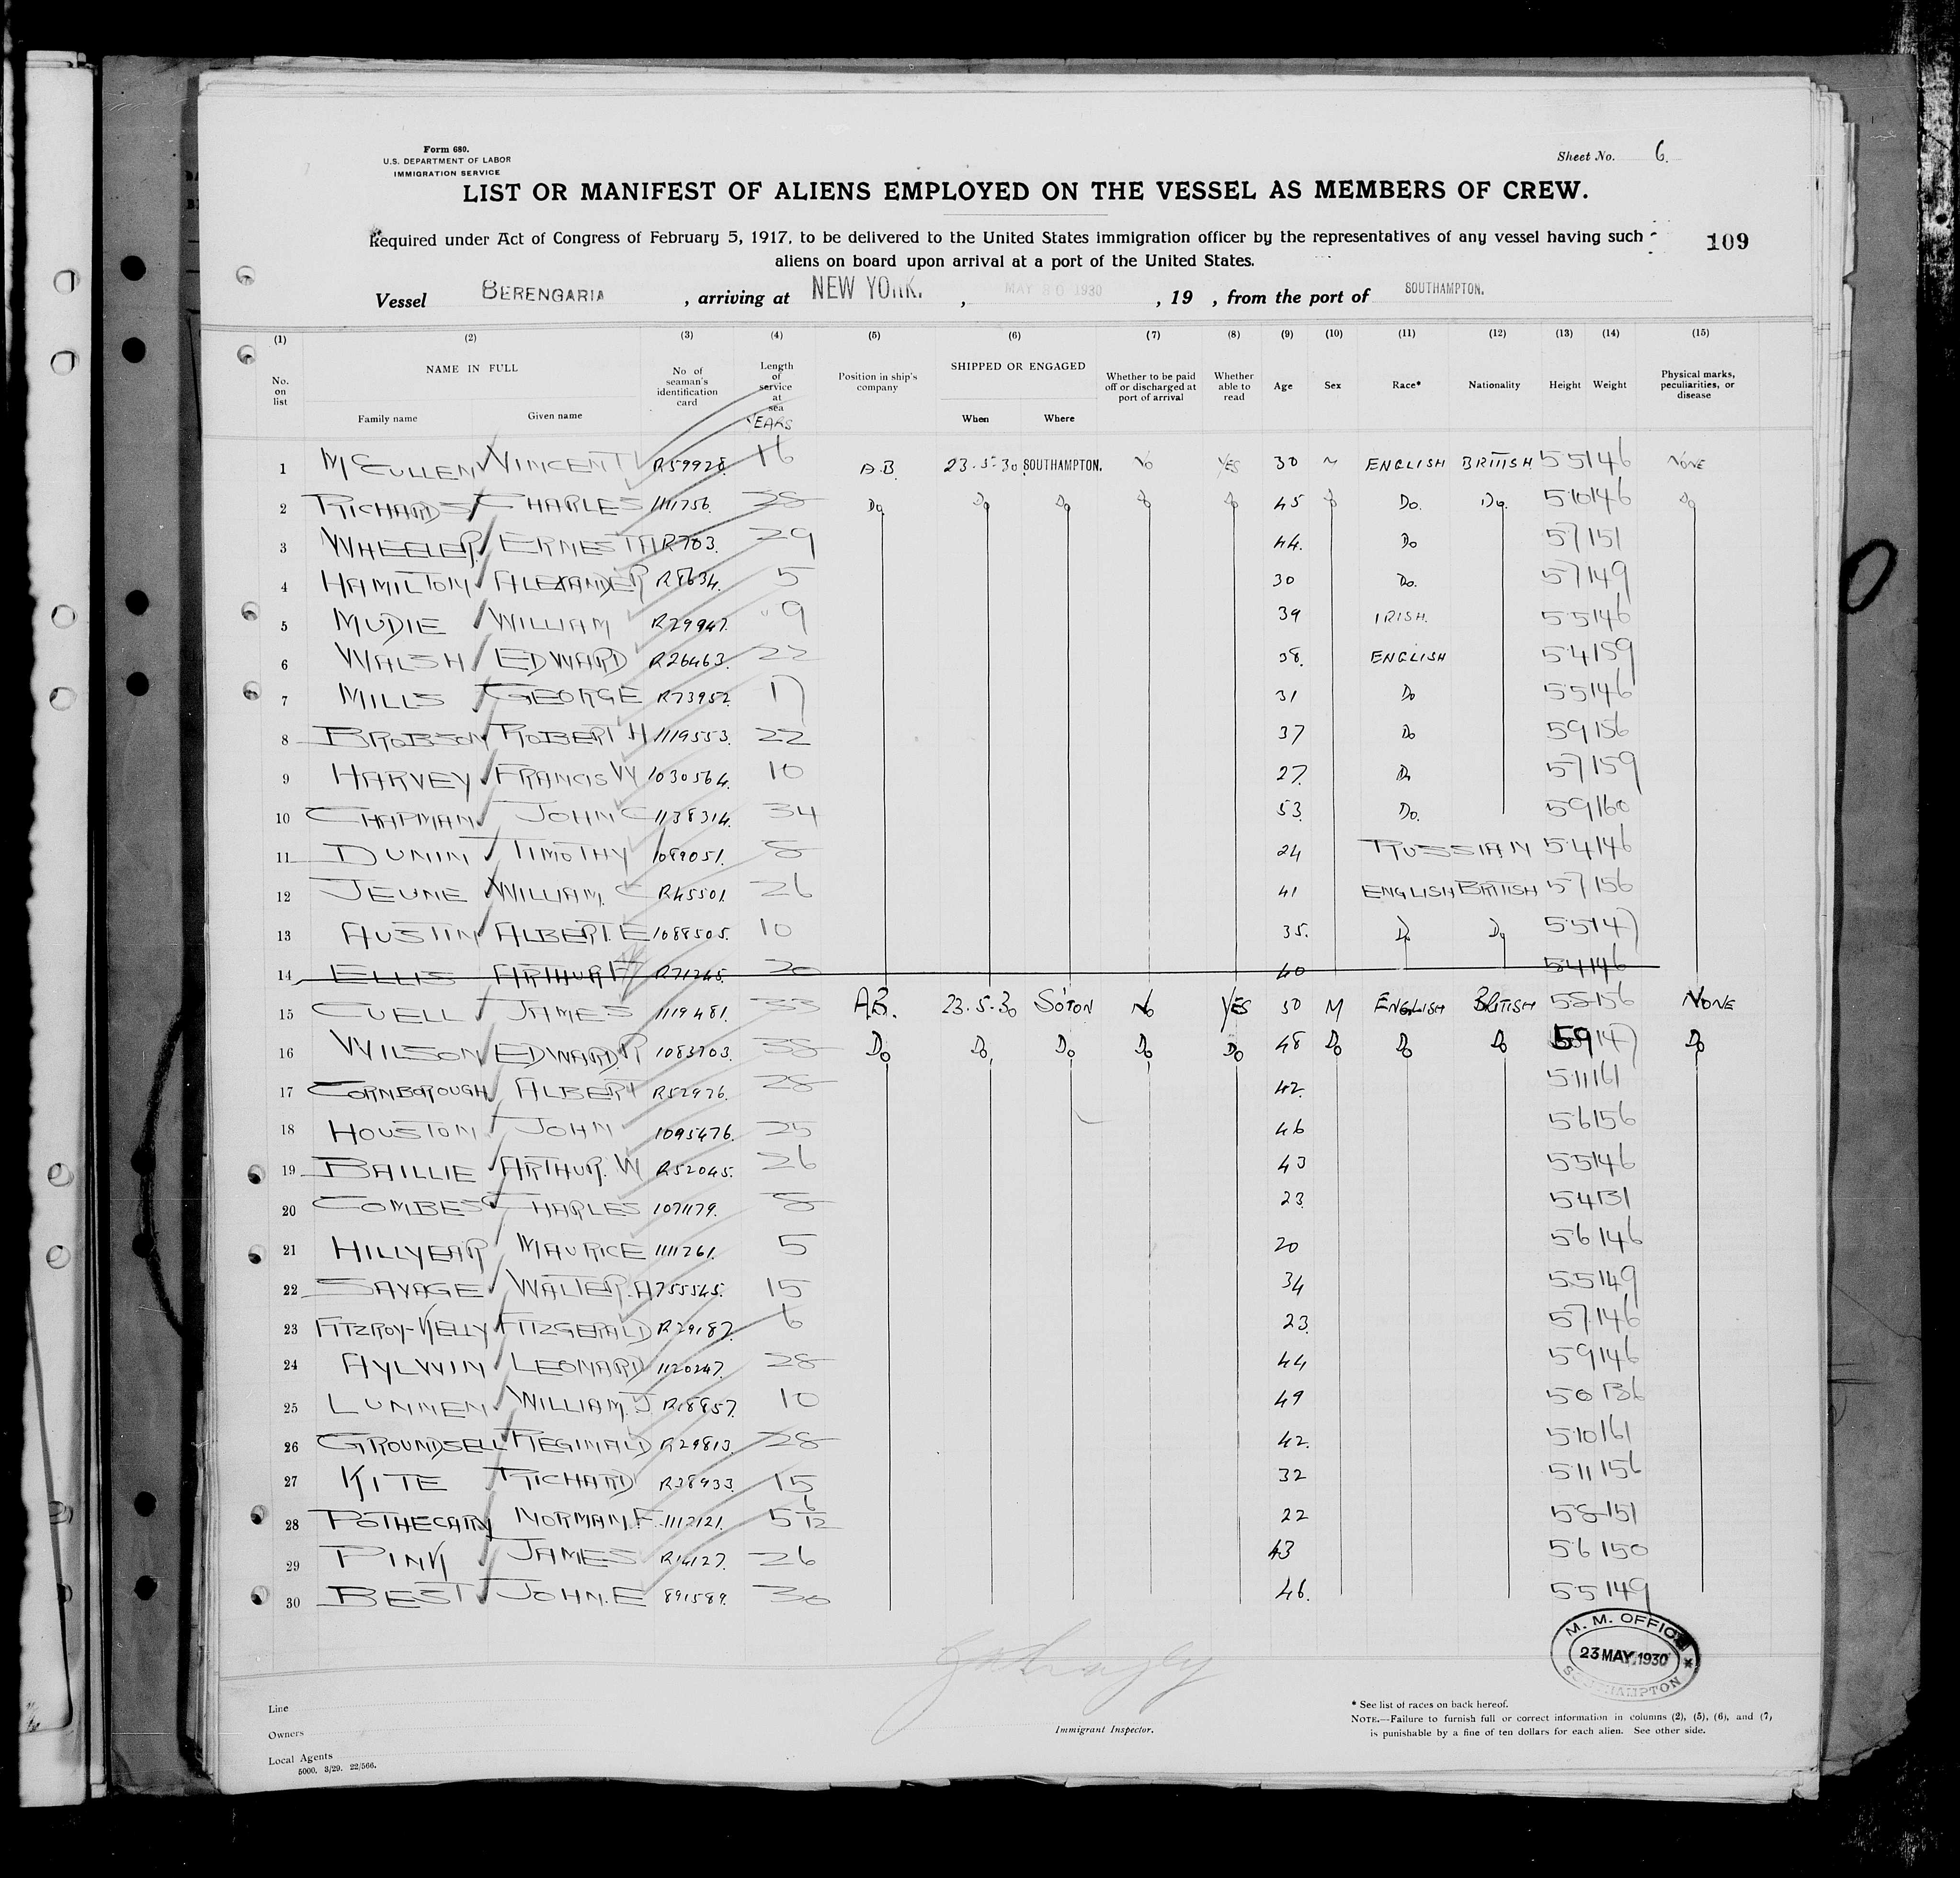 Form 680.
U.S. DEPARTMENT OF LABOR
IMMIGRATION SERVICE
Sheet No. 6.
LIST OR MANIFEST OF ALIENS EMPLOYED ON THE VESSEL AS MEMBERS OF CREW.
Required under Act of Congress of February 5, 1917, to be delivered to the United States immigration officer by the representatives of any vessel having such
aliens on board upon arrival at a port of the United States.
109
Vessel BERENGARIA , arriving at NEW YORK. , MAY 30 1930 , 19 , from the port of SOUTHAMPTON.
(1) (2) (3) (4) (5) (6) (7) (8) (9) (10) (11) (12) (13) (14) (15)
No. on list NAME IN FULL Family name Given name No of seaman's identification card Length of service at sea YEARS Position in ship's company SHIPPED OR ENGAGED When Where Whether to be paid off or discharged at port of arrival Whether able to read Age Sex Race* Nationality Height Weight Physical marks, peculiarities, or disease
1 McCULLEN VINCENT R59928 16 A.B. 23.5.30 SOUTHAMPTON. No YES 30 M ENGLISH BRITISH 5 5 146 NONE
2 RICHARDS CHARLES 1111756. 28 Do Do Do Do Do 45 Do Do. Do. 5 10 146 Do
3 WHEELER ERNEST H R703. 29 44. Do 5 7 151
4 HAMILTON ALEXANDER R8634. 5 30 Do. 5 7 149
5 MUDIE WILLIAM R29947. 9 39 IRISH. 5 5 146
6 WALSH EDWARD R26463. 22 38. ENGLISH 5 4 159
7 MILLS GEORGE R73952. 17 31 Do 5 5 146
8 BROBSON ROBERT H 1119553. 22 37 Do 5 9 156
9 HARVEY FRANCIS W 1030564. 10 27. Do 5 7 159
10 CHAPMAN JOHN C 1138314. 34 53. Do. 5 9 160
11 DUNIN TIMOTHY 1089051. 8 24 RUSSIAN 5 4 146
12 JEUNE WILLIAM. C R45501. 26 41 ENGLISH BRITISH 5 7 156
13 AUSTIN ALBERT. E 1088505. 10 35. Do Do 5 5 147
14 ELLIS ARTHUR F R71245. 20 40 5 4 146
15 CUELL JAMES 1119481. 33 A.B. 23.5.30 SO'TON No YES 50 M ENGLISH BRITISH 5 8 156 NONE
16 WILSON EDWARD. R 1083703. 38 Do Do, Do Do Do 48 Do Do Do 5 9 147 Do
17 CORNBOROUGH ALBERT R52976. 28 42. 5 11 161
18 HOUSTON JOHN 1095476. 25 46 5 6 156
19 BAILLIE ARTHUR. W R52045. 26 43 5 5 146
20 COMBES CHARLES 1071179. 8 23. 5 4 131
21 HILLYEAR MAURICE 1111261. 5 20 5 6 146
22 SAVAGE WALTER. H 755545. 15 34 5 5 149
23 FITZROY-KELLY FITZGERALD R29187. 6 23. 5 7 146
24 AYLWIN LEONARD 1120247. 28 44 5 9 146
25 LUNNEN WILLIAM. J R18857. 10 49 5 0 136
26 GROUNDSELL REGINALD R29813. 28 42. 5 10 161
27 KITE RICHARD R38933. 15 32 5 11 156
28 POTHECARY NORMAN. F. 1112121. 5 6/12 22 5 8 151
29 PINK JAMES R14127. 26 43 5 6 150
30 BEST JOHN. E 891589. 30 46. 5 5 149
M. M. OFFICE
23 MAY 1930
SOUTHAMPTON
Line
Owners
Local Agents
5000. 3/29. 22/566.
Immigrant Inspector.
* See list of races on back hereof.
NOTE.—Failure to furnish full or correct information in columns (2), (5), (6), and (7)
is punishable by a fine of ten dollars for each alien. See other side.